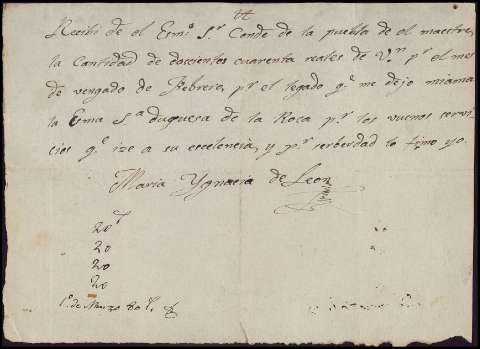 Recibi de el Esmº Sr Conde de la puebla de el maestre,
la Cantidad de doscientos cuarenta reales de Vn pr el mes
de vengado de Febrero, pr el legado qe me dejo miama
la Esma Sa duquesa de la Roca pr los vuenos servi
cios qe ize a su escelencia, y pr serberdad lo fimo yo.
Maria Ygnacia de Leon
20
20
20
20
1º de Marzo